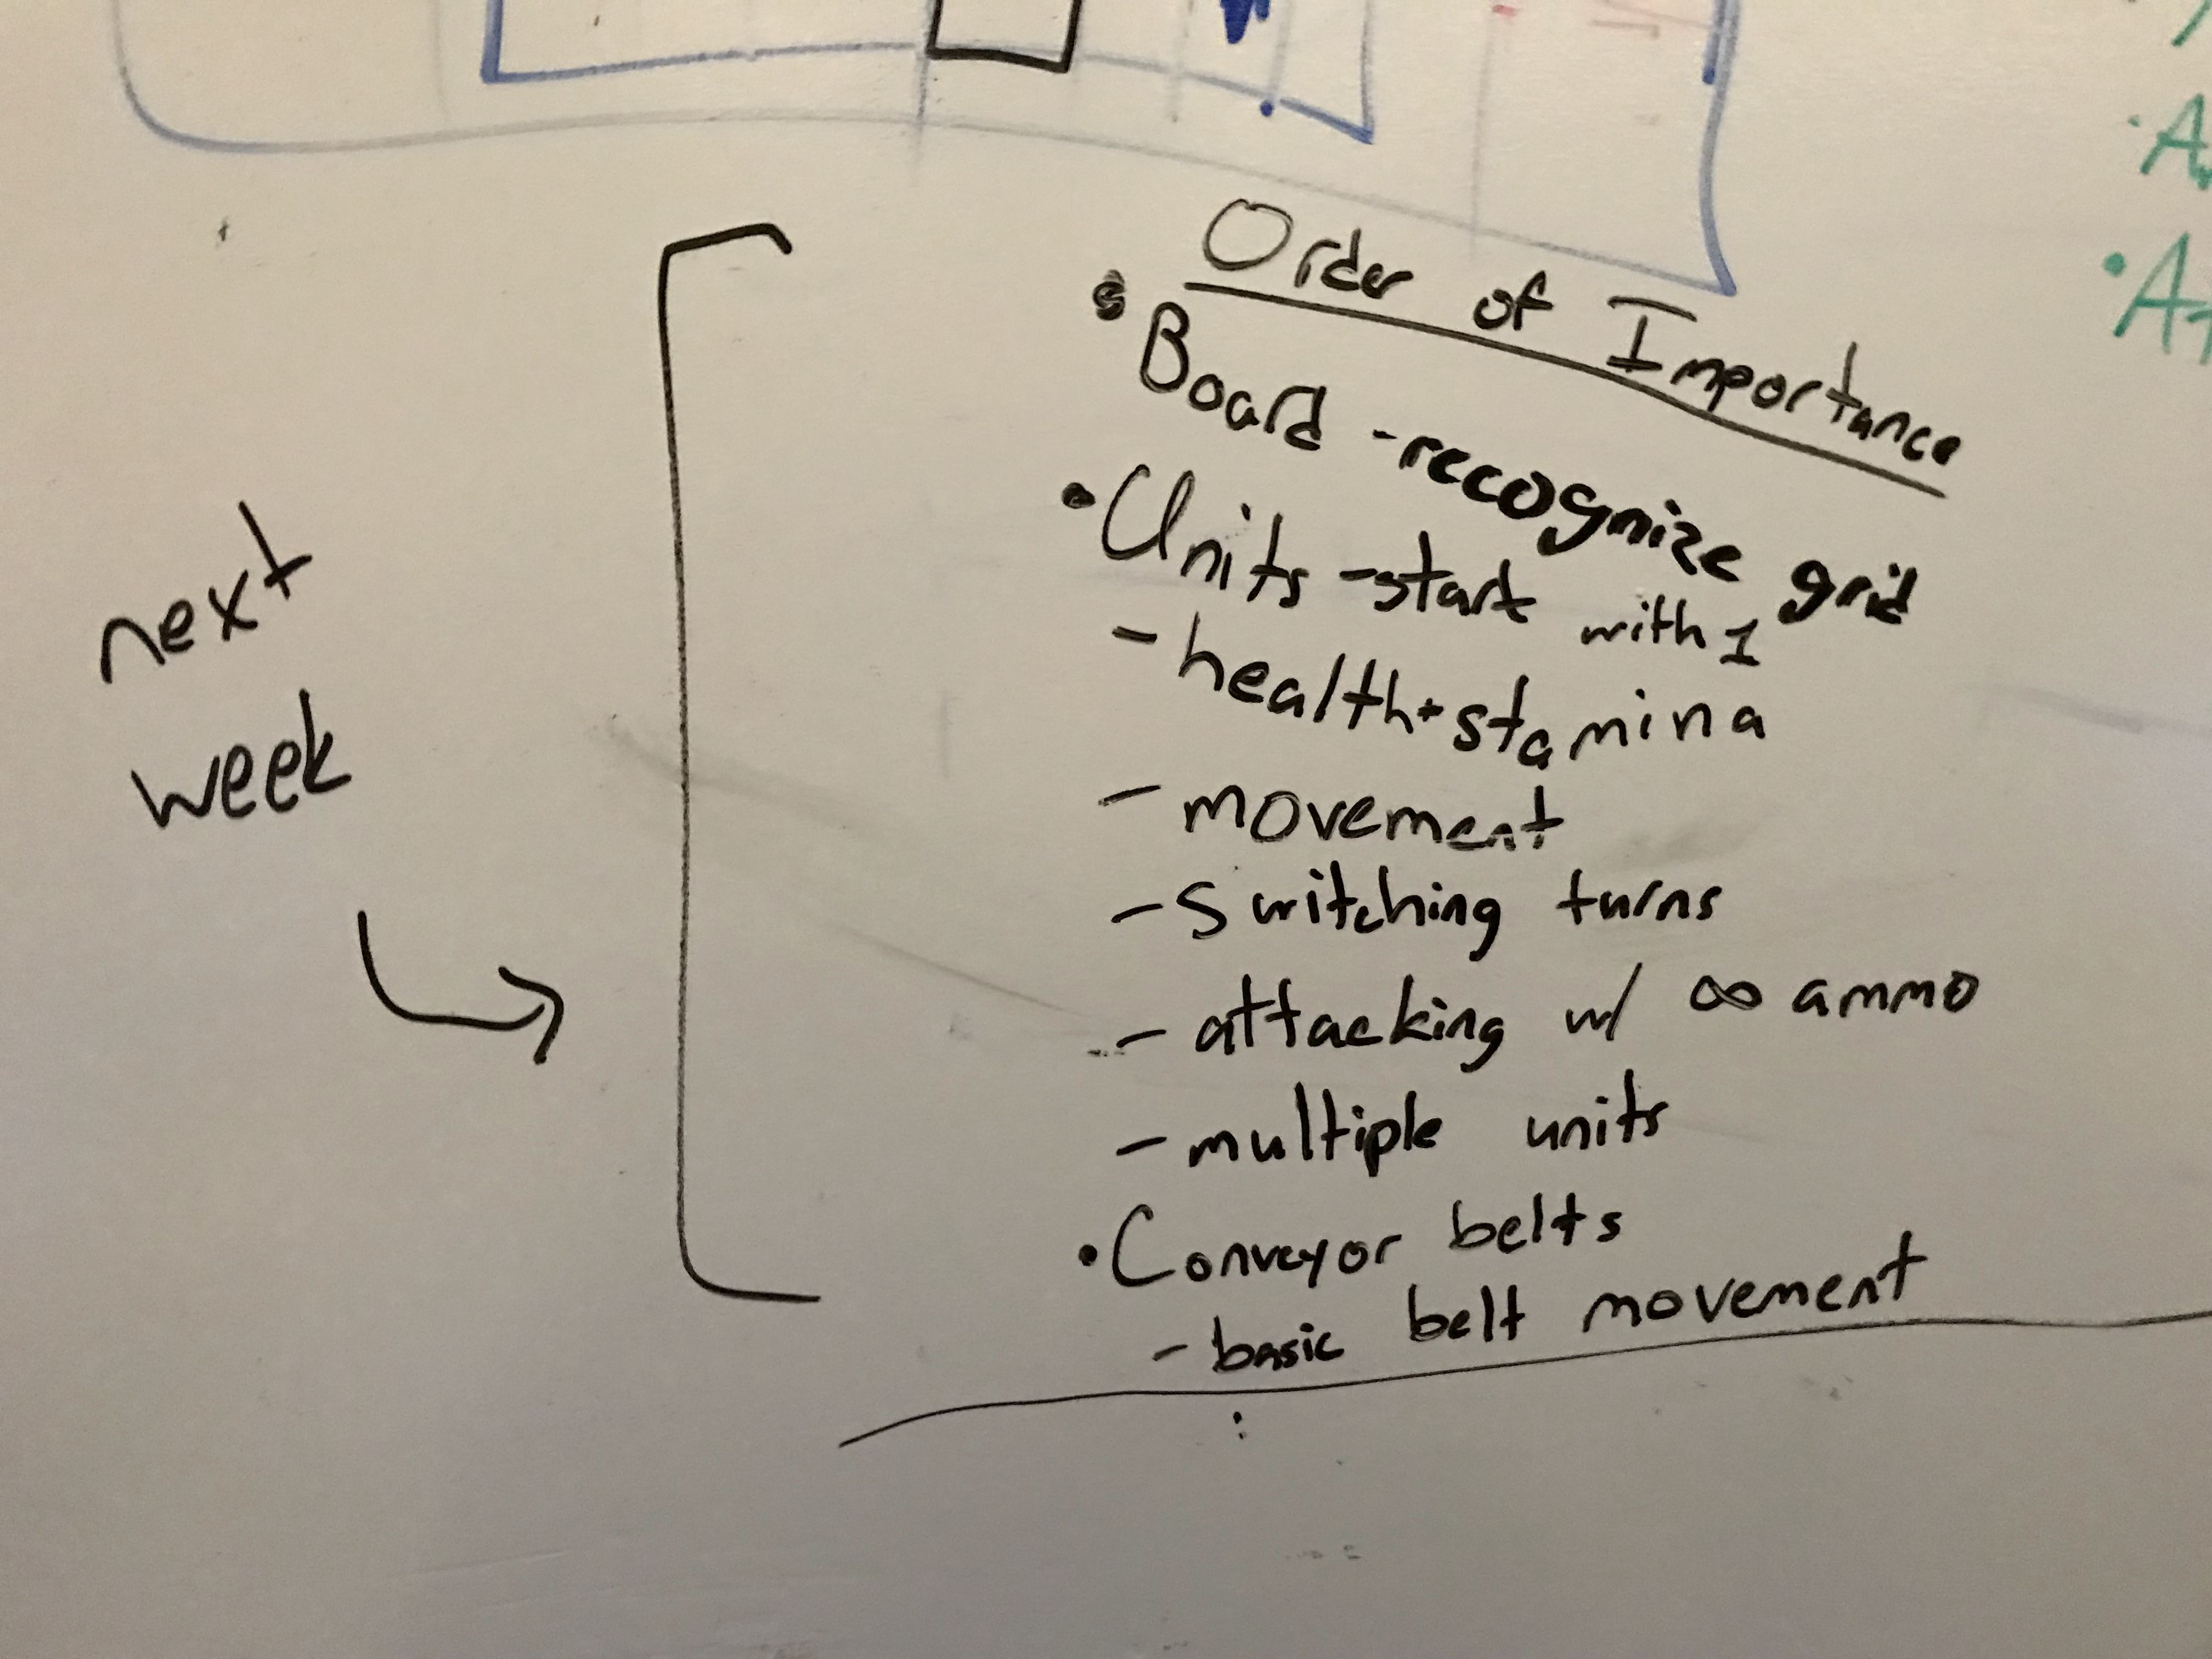 Order of Importance
• Board - recognize grid
• Units - start with 1
- health + stamina
- movement
- switching turns
- attacking w/ ∞ ammo
- multiple units
• Conveyor belts
- basic belt movement
next
week